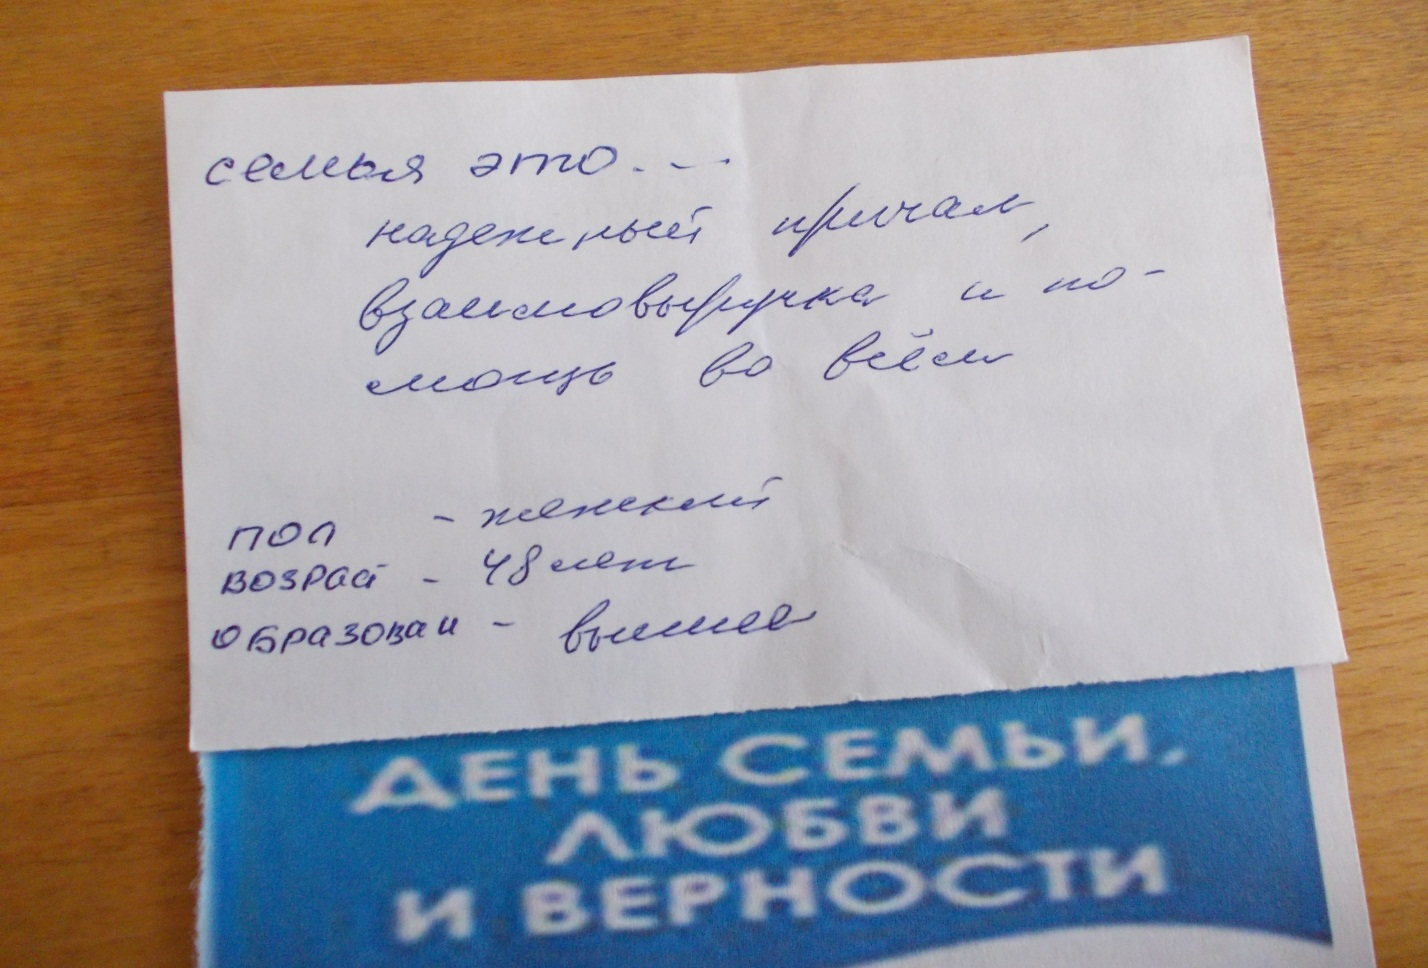 семья это...
надежный причал,
взаимовыручка и по-
мощь во всём
ПОЛ - женский
ВОЗРАСТ - 48 лет
ОБРАЗОВАН - высшее
ДЕНЬ СЕМЬИ,
ЛЮБВИ
И ВЕРНОСТИ